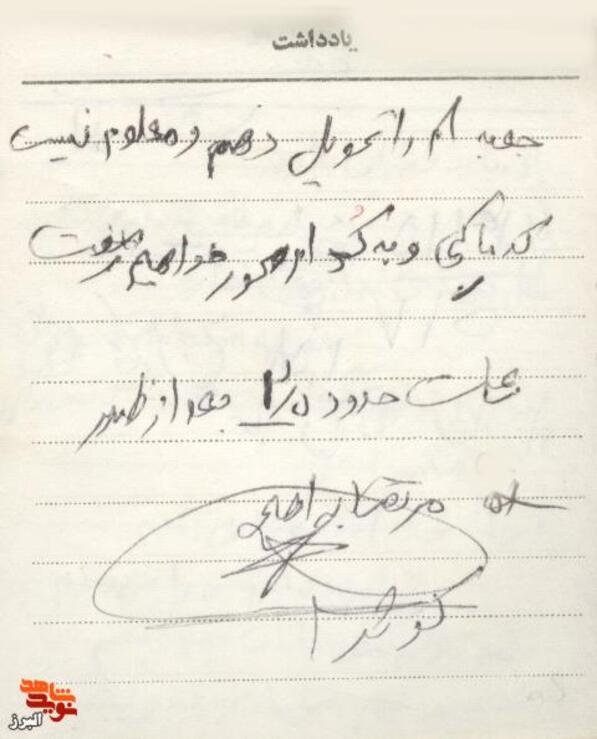 یادداشت
جعبه ام را تحویل دهم و معلوم نیست
که با کی و به کد ام محور خواهیم رفت
ساعت حدود ۲/۵ بعد از ظهر
مرتضی
کوثر ۱
نوید شاهد
البرز